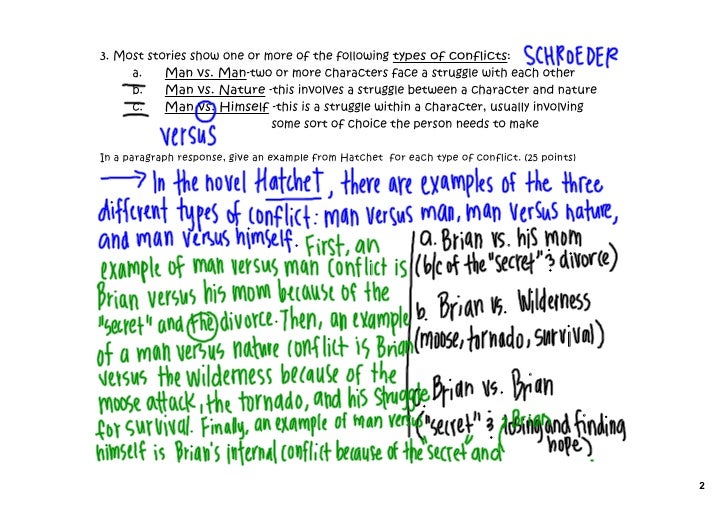 3. Most stories show one or more of the following types of conflicts: SCHROEDER
a. Man vs. Man-two or more characters face a struggle with each other
b. Man vs. Nature -this involves a struggle between a character and nature
c. Man vs. Himself -this is a struggle within a character, usually involving
some sort of choice the person needs to make
versus
In a paragraph response, give an example from Hatchet for each type of conflict. (25 points)
→ In the novel Hatchet, there are examples of the three
different types of conflict: man versus man, man versus nature,
and man versus himself. First, an
example of man versus man conflict is
Brian versus his mom because of the
"secret" and the divorce. Then, an example
of a man versus nature conflict is Brian
versus the wilderness because of the
moose attack, the tornado, and his struggle
for survival. Finally, an example of man versus
himself is Brian's internal conflict because of the "secret" and
a. Brian vs. his mom
(b/c of the "secret" & divorce)
b. Brian vs. Wilderness
(moose, tornado, survival)
Brian vs. Brian
("secret" & losing and finding
hope)
Brian
2